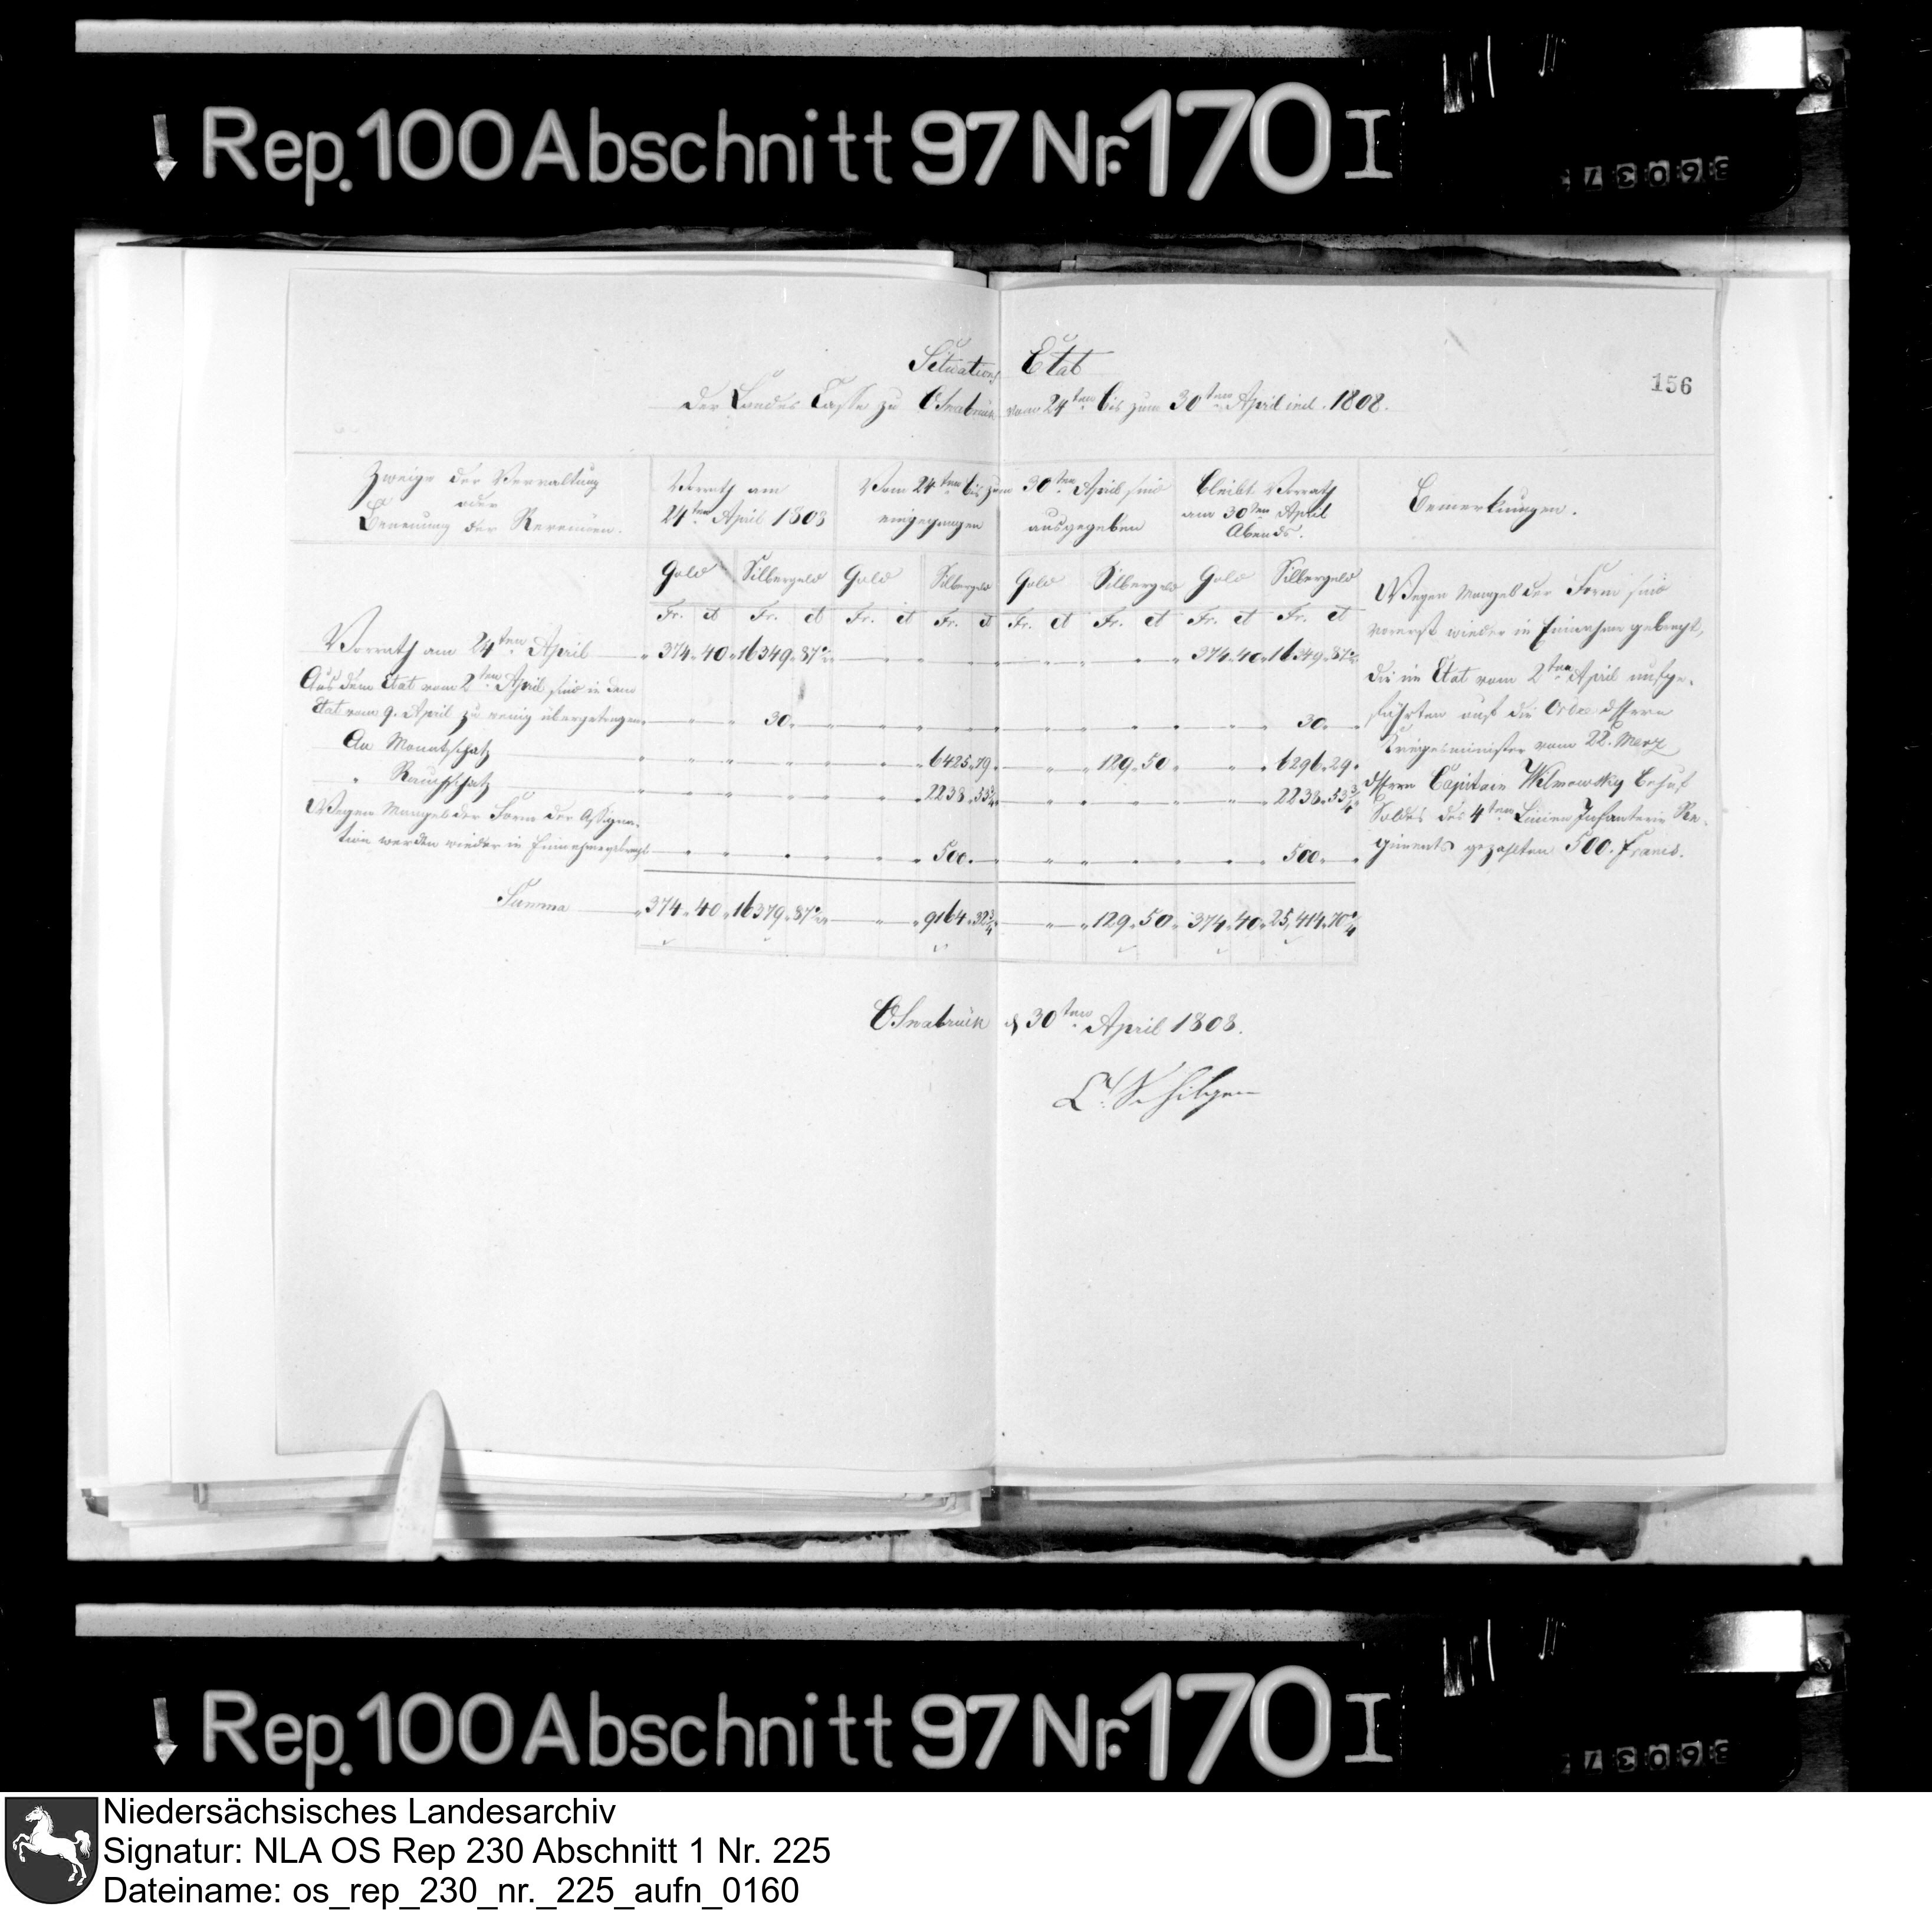 Rep. 100 Abschnitt 97 Nr. 170 I
36037
156
Situations Etat
der Landes Casse zu Osnabrück vom 24ten bis zum 30ten April incl. 1808.
Zweige der Verwaltung
oder
Benennung der Revenuen.
Vorrath am
24ten April 1808
Vom 24ten bis zum 30ten April sind
eingegangen
ausgegeben
bleibt Vorrath
am 30ten April
Abends.
Bemerkungen.
Gold Silbergeld Gold Silbergeld Gold Silbergeld Gold Silbergeld
Fr. ct Fr. ct Fr. ct Fr. ct Fr. ct Fr. ct Fr. ct Fr. ct
Vorrath am 24ten April 374 40 16349 87 374 40 16349 87
Aus dem Etat vom 2ten April sind in dem
Etat vom 9. April zu wenig übergetragen 30 30
An Monatschatz 6425 79 129 50 6296 29
" Rauchschatz 2238 53¾ 2238 53¾
Wegen Mangel der Form der Assigna-
tion werden wieder in Einnahme gebracht 500 500
Summa 374 40 16379 87 9164 32¾ 129 50 374 40 25,414 70
Wegen Mangel der Form sind
vorerst wieder in Einnahme gebracht,
die im Etat vom 2ten April aufge-
führten auf die Ordre
Kriegesminister vom 22. Merz
Capitain Wilmowsky behuf
Soldes des 4ten Linien Infanterie Re-
giments gezahlten 500. Francs.
Osnabrück d 30ten April 1808.
Schilgen
Rep. 100 Abschnitt 97 Nr. 170 I
36037
Niedersächsisches Landesarchiv
Signatur: NLA OS Rep 230 Abschnitt 1 Nr. 225
Dateiname: os_rep_230_nr._225_aufn_0160